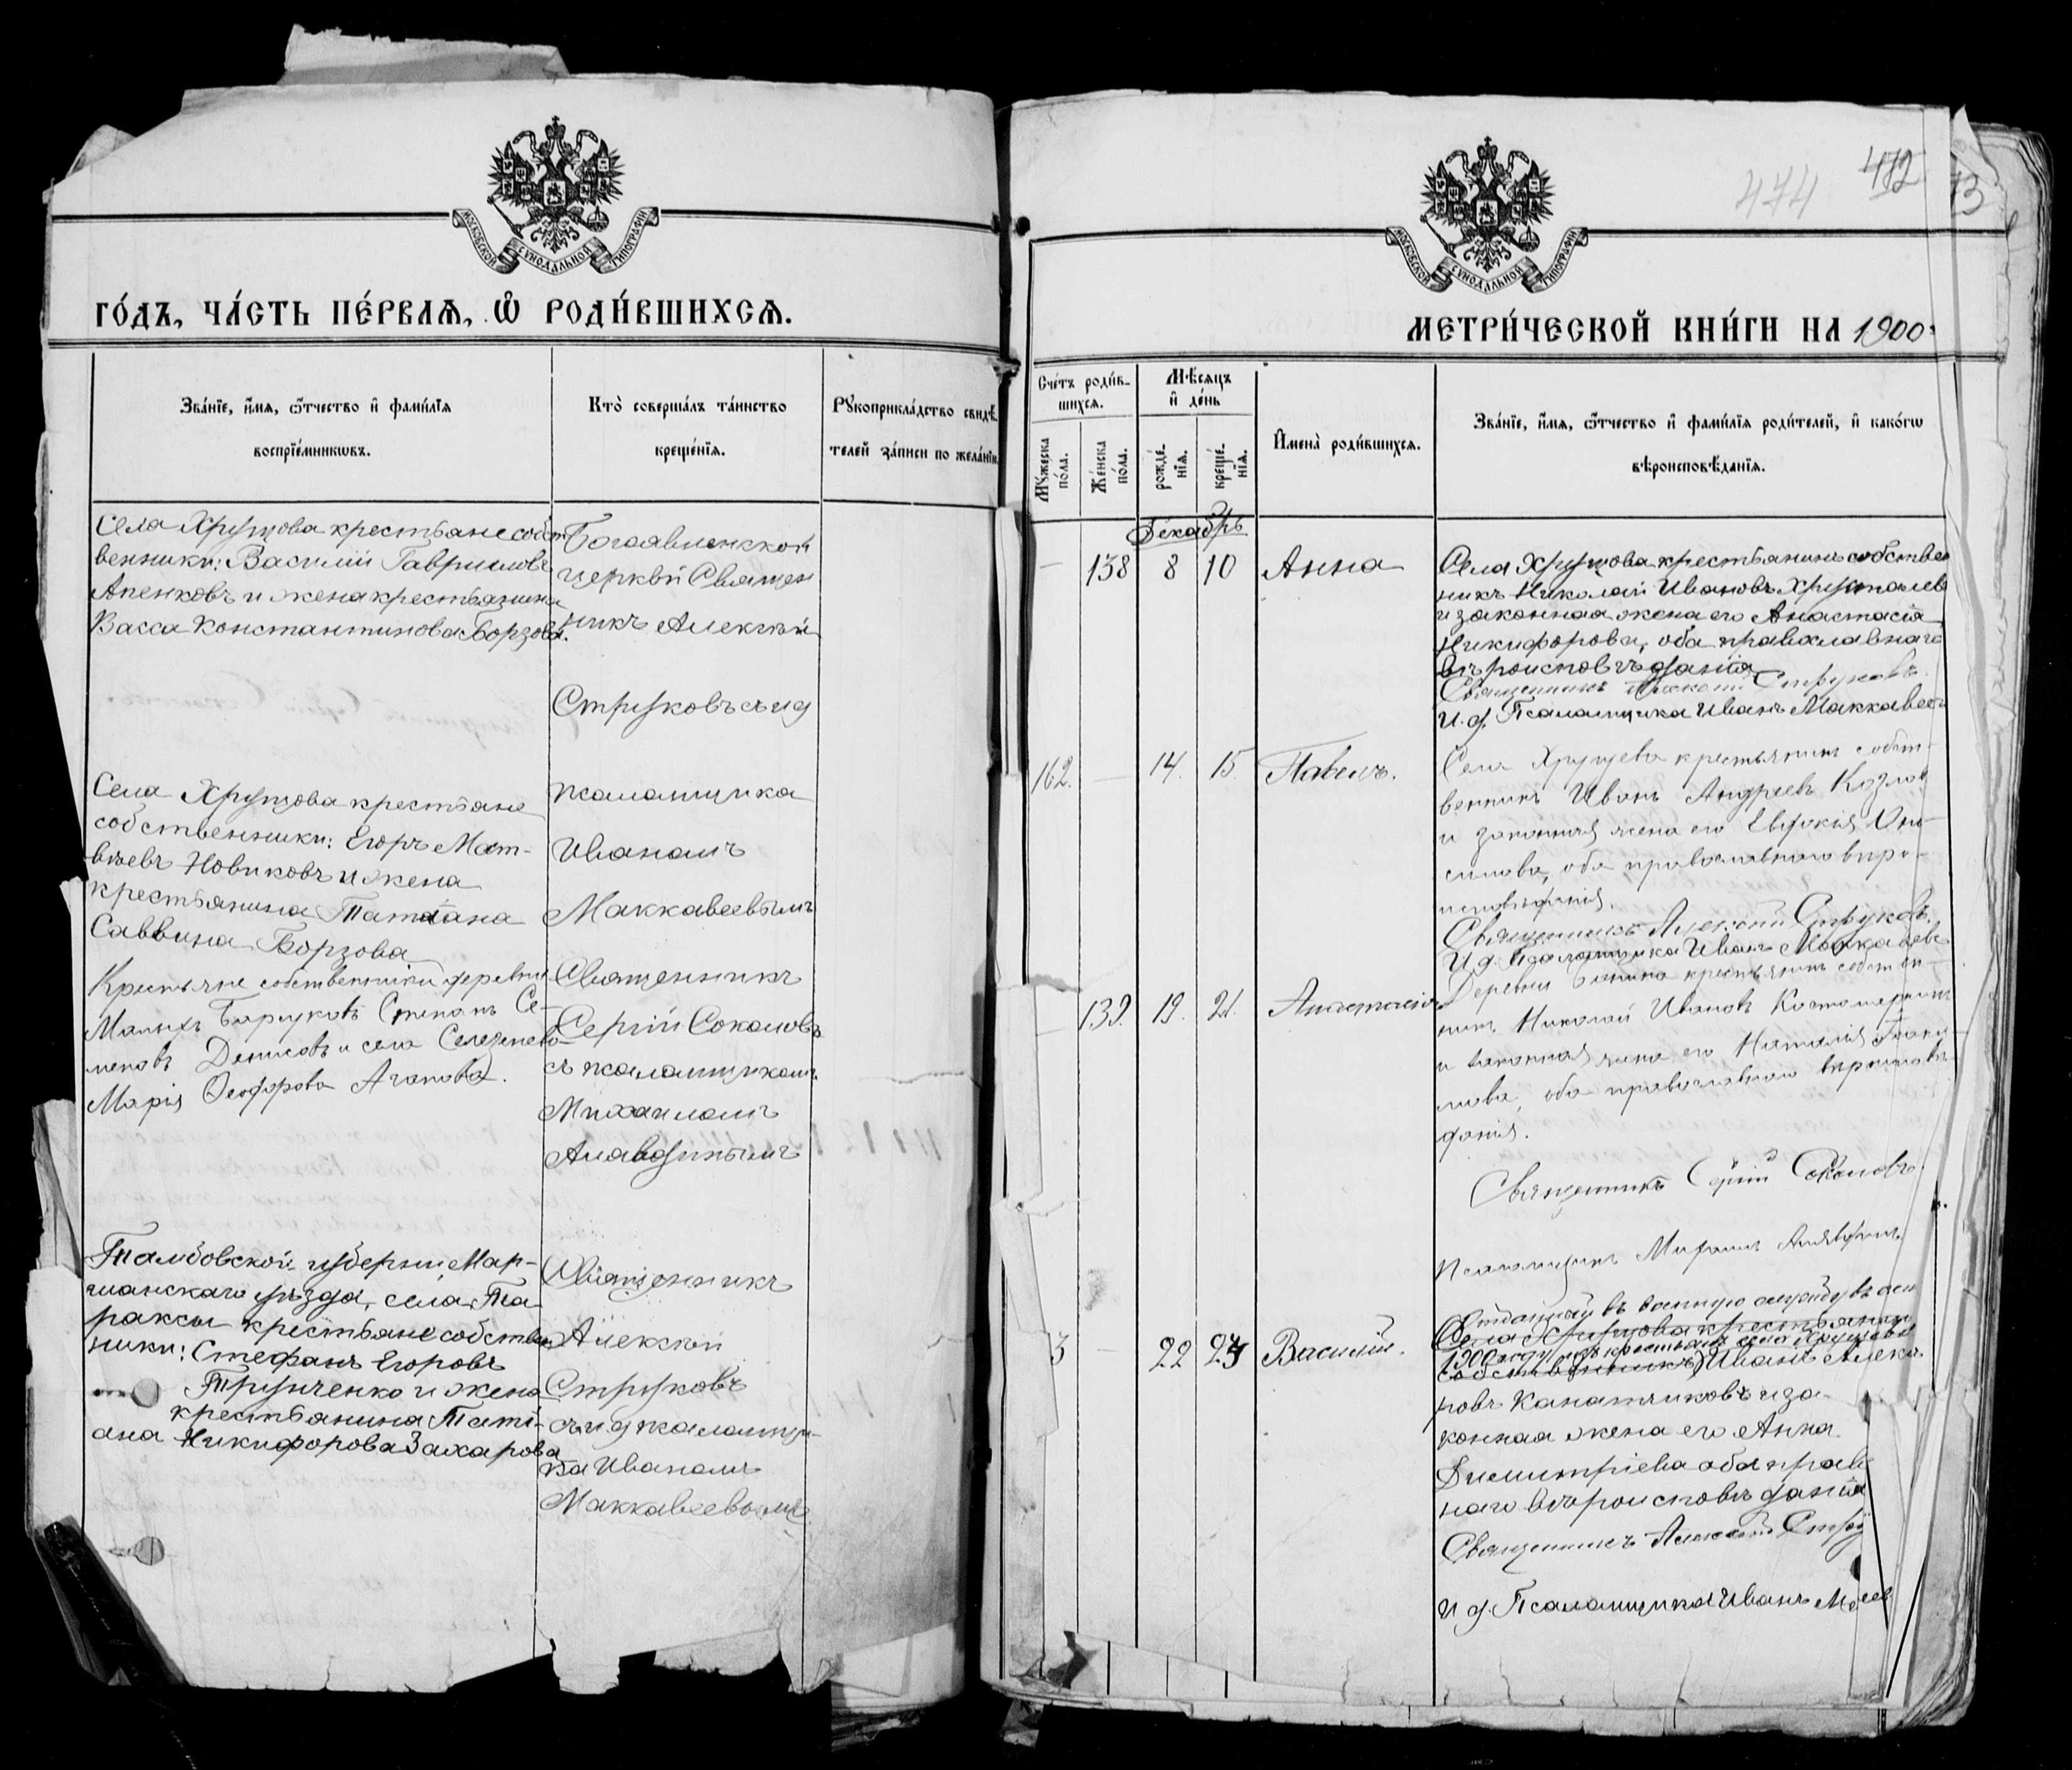 МОСКОВСКОЙ СѴНОДАЛЬНОЙ ТИПОГРАФІИ
ГО́ДЪ, ЧА́СТЬ ПЕ́РВАѦ, Ѽ РОДИ́ВШИХСѦ.
Зва́нїе, и҆́мѧ, ѿтчество и҆ фами́лїѧ
воспрїе́мникѡвъ.
Кто̀ соверша́лъ та́инство
креще́нїѧ.
Рꙋкоприкла́дство свидѣ́-
телей за́писи по жела́нїю
Села Хрущова крестьяне собст
венники: Василій Гавриловъ
Апенковъ и жена крестьянина
Васса Константинова Борзова.
Богоявленской
церкви Священ
никъ Алексѣй
Струковъ съ и д
псаломщика
Иваномъ
Маккавеевымъ
Села Хрущова крестьяне
собственники: Егоръ Мат-
вѣевъ Новиковъ и жена
крестьянина Татіана
Саввина Борзова
Крестьяне собственники деревни
Малыхъ Степанъ Се-
меновъ Денисовъ и села Селезнево
Марія Ѳеодорова Агапова.
Священникъ
Сергій Соколовъ
съ псаломщикомъ
Михаиломъ
Алавдинымъ
Тамбовской губерніи, Мор-
шанскаго уѣзда, села Та
раксы крестьяне собствен
ники: Стефанъ Егоровъ
Трунченко и жена
крестьянина Таті-
ана Никифорова Захарова
Священникъ
Алексѣй
Струковъ
съ и. д псаломщи-
ка Иваномъ
Маккавеевымъ
474 472
73
МОСКОВСКОЙ СѴНОДАЛЬНОЙ ТИПОГРАФІИ
МЕТРИ́ЧЕСКОЙ КНИ́ГИ НА 1900
Сче́тъ роди́в-
шихсѧ.
Мꙋ́жеска по́ла.
Же́нска по́ла.
Мѣ́сѧцъ и҆ де́нь
рожде́-нїѧ.
креще́-нїѧ.
И҆мена̀ роди́вшихсѧ.
Зва́нїе, и҆́мѧ, ѿтчество и҆ фами́лїѧ роди́телей, и҆ како́гѡ
вѣроисповѣ́данїѧ.
Декабрь
— 138 8 10 Анна
Села Хрущова крестьянинъ собствен
никъ Николай Ивановъ Хрусталев
и законная жена его Анастасія
Никифорова, оба православнаго
вѣроисповѣданія
Священникъ Алексѣй Струковъ.
И. д. Псаломщика Иванъ Маккавеев
162. — 14. 15. Павелъ.
Села Хрущева крестьянинъ собст-
венникъ Иванъ Андреевъ Козлов
и законная жена его Евдокія Они-
симова, оба православнаго вѣро-
исповѣданія.
Священникъ Алексѣй Струковъ.
И. д. Псаломщика Иванъ Маккавеев
— 139. 19. 21. Анастасія
Деревни крестьянинъ собствен-
никъ Николай Ивановъ
и законная жена его Наталія
мова, оба православнаго вѣроисповѣ-
данія.
Священникъ Сергій Соколовъ.
Псаломщикъ Михаилъ Алявдинъ
3 — 22 23 Василій.
Села Хрущова крестьянинъ
собственникъ Иванъ
Канатчиковъ и за-
конная жена его Анна
Димитріева оба прав
наго вѣроисповѣданія
Священникъ Алексѣй Стру
И д. Псаломщика Иванъ